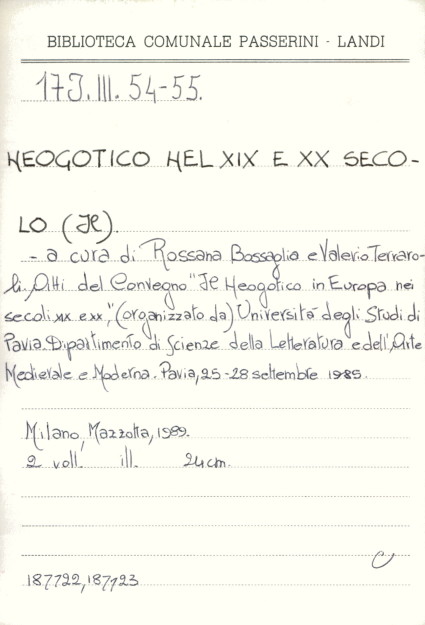 BIBLIOTECA COMUNALE PASSERINI - LANDI
17J.III. 54-55.
NEOGOTICO NEL XIX E XX SECO-
LO (Il).
- a cura di Rossana Bossaglia e Valerio Terraro-
li. Atti del Convegno "Il Neogotico in Europa nei
secoli XIX e XX", (organizzato da) Università degli Studi di
Pavia. Dipartimento di Scienze della Letteratura e dell'Arte
Medievale e Moderna. Pavia, 25-28 settembre 1985.
Milano, Mazzotta, 1989.
2 voll. ill. 24cm.
187122, 187123